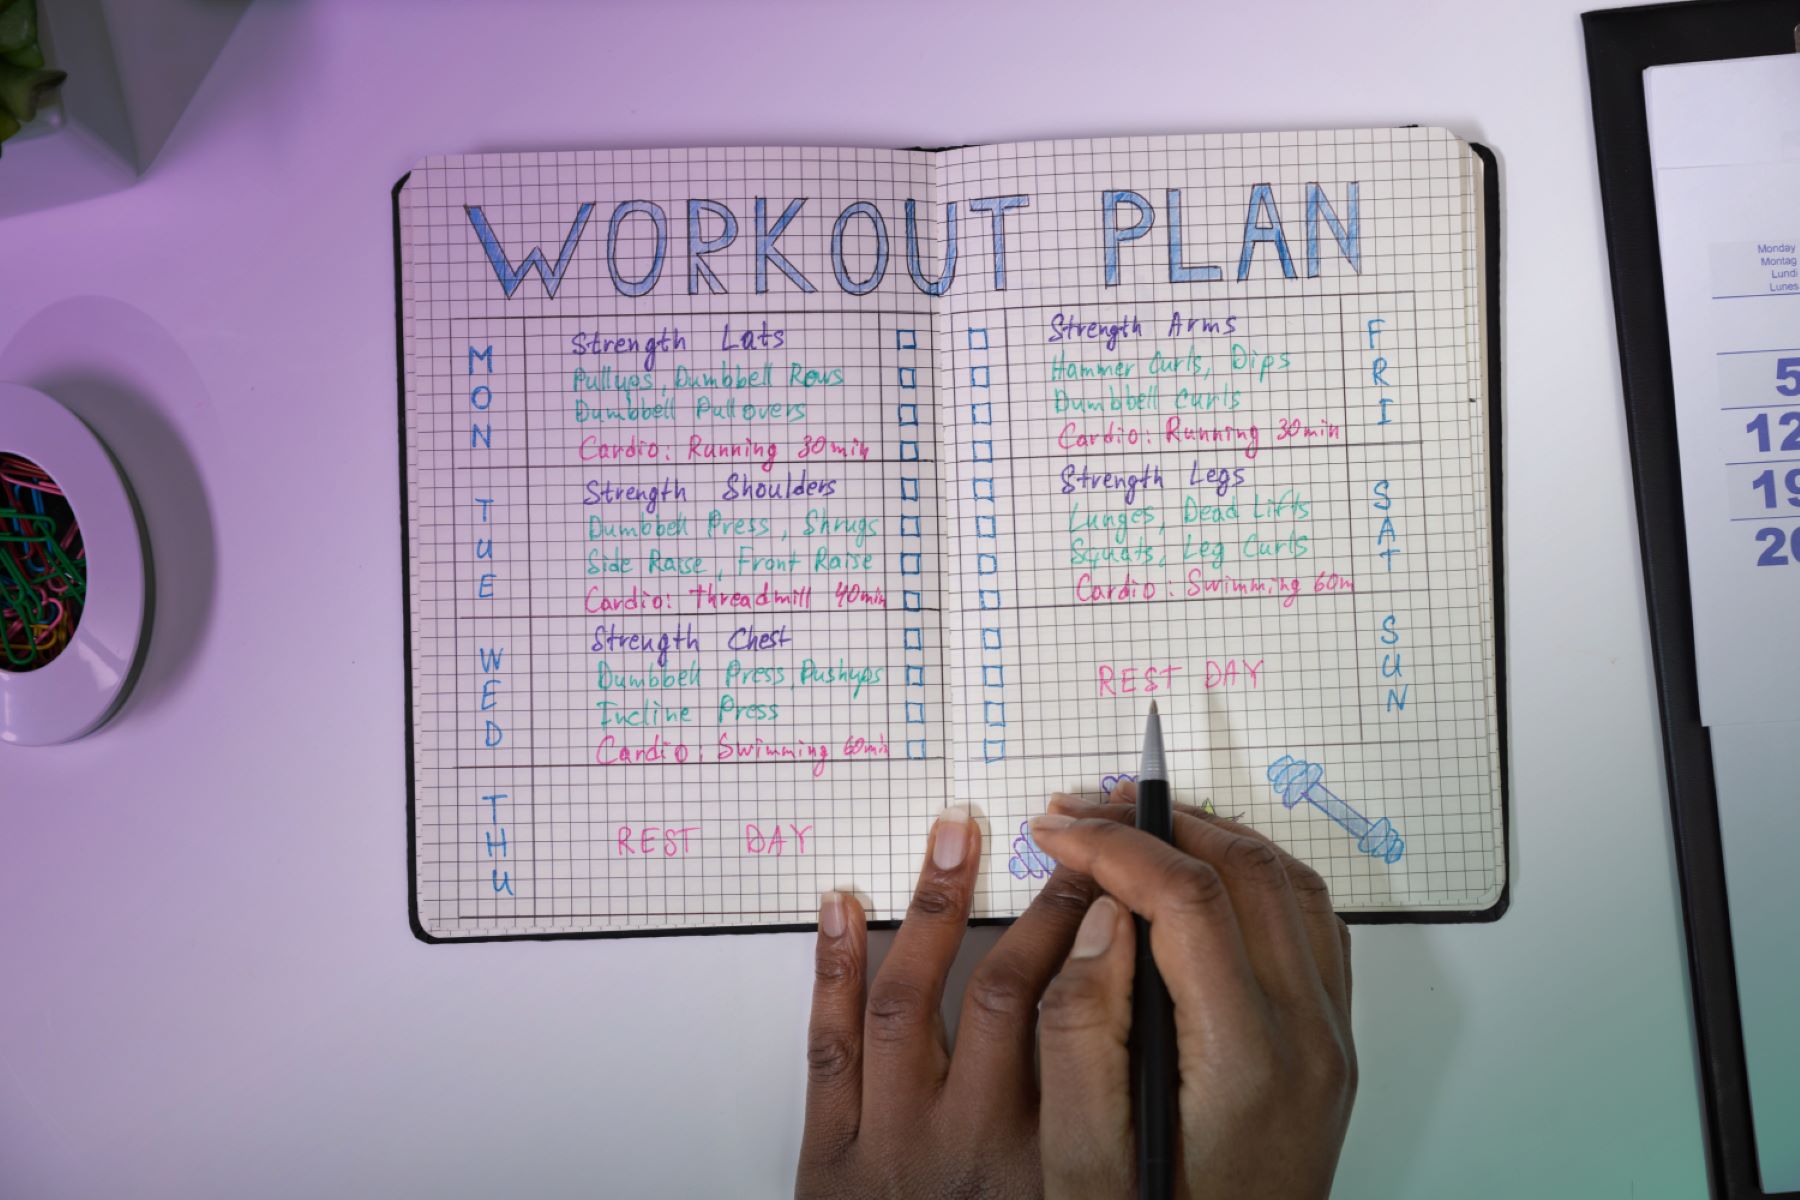 WORKOUT PLAN
MON
Strength Lats
Pullups, Dumbbell Rows
Dumbbell Pullovers
Cardio: Running 30min
TUE
Strength Shoulders
Dumbbell Press, Shrugs
Side Raise, Front Raise
Cardio: threadmill 40min
WED
Strength Chest
Dumbbell Press, Pushyps
Incline Press
Cardio: Swimming 60min
THU
REST DAY
Strength Arms
FRI
Hammer Curls, Dips
Dumbbell Curls
Cardio: Running 30min
Strength Legs
SAT
Lunges, Dead Lifts
Squats, Leg Curls
Cardio: Swimming 60m
SUN
REST DAY
Monday
Montag
Lundi
Lunes
5
12